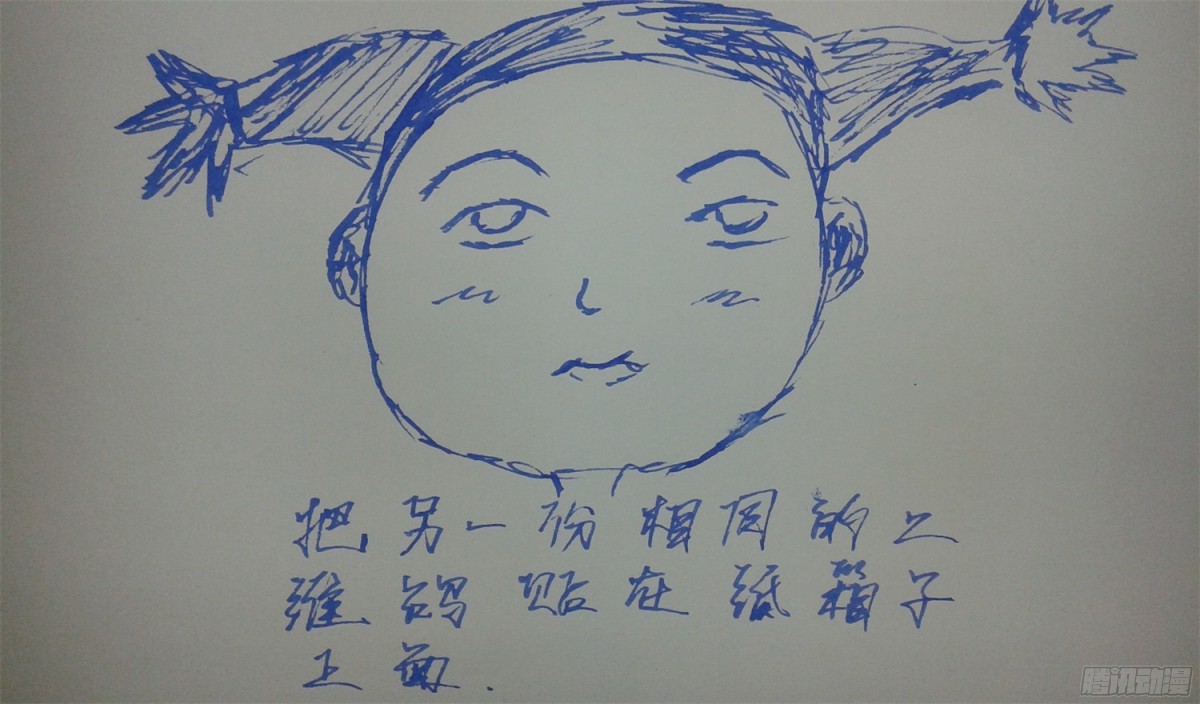 把另一份相同的二
维码贴在纸箱子
上面.
腾讯动漫